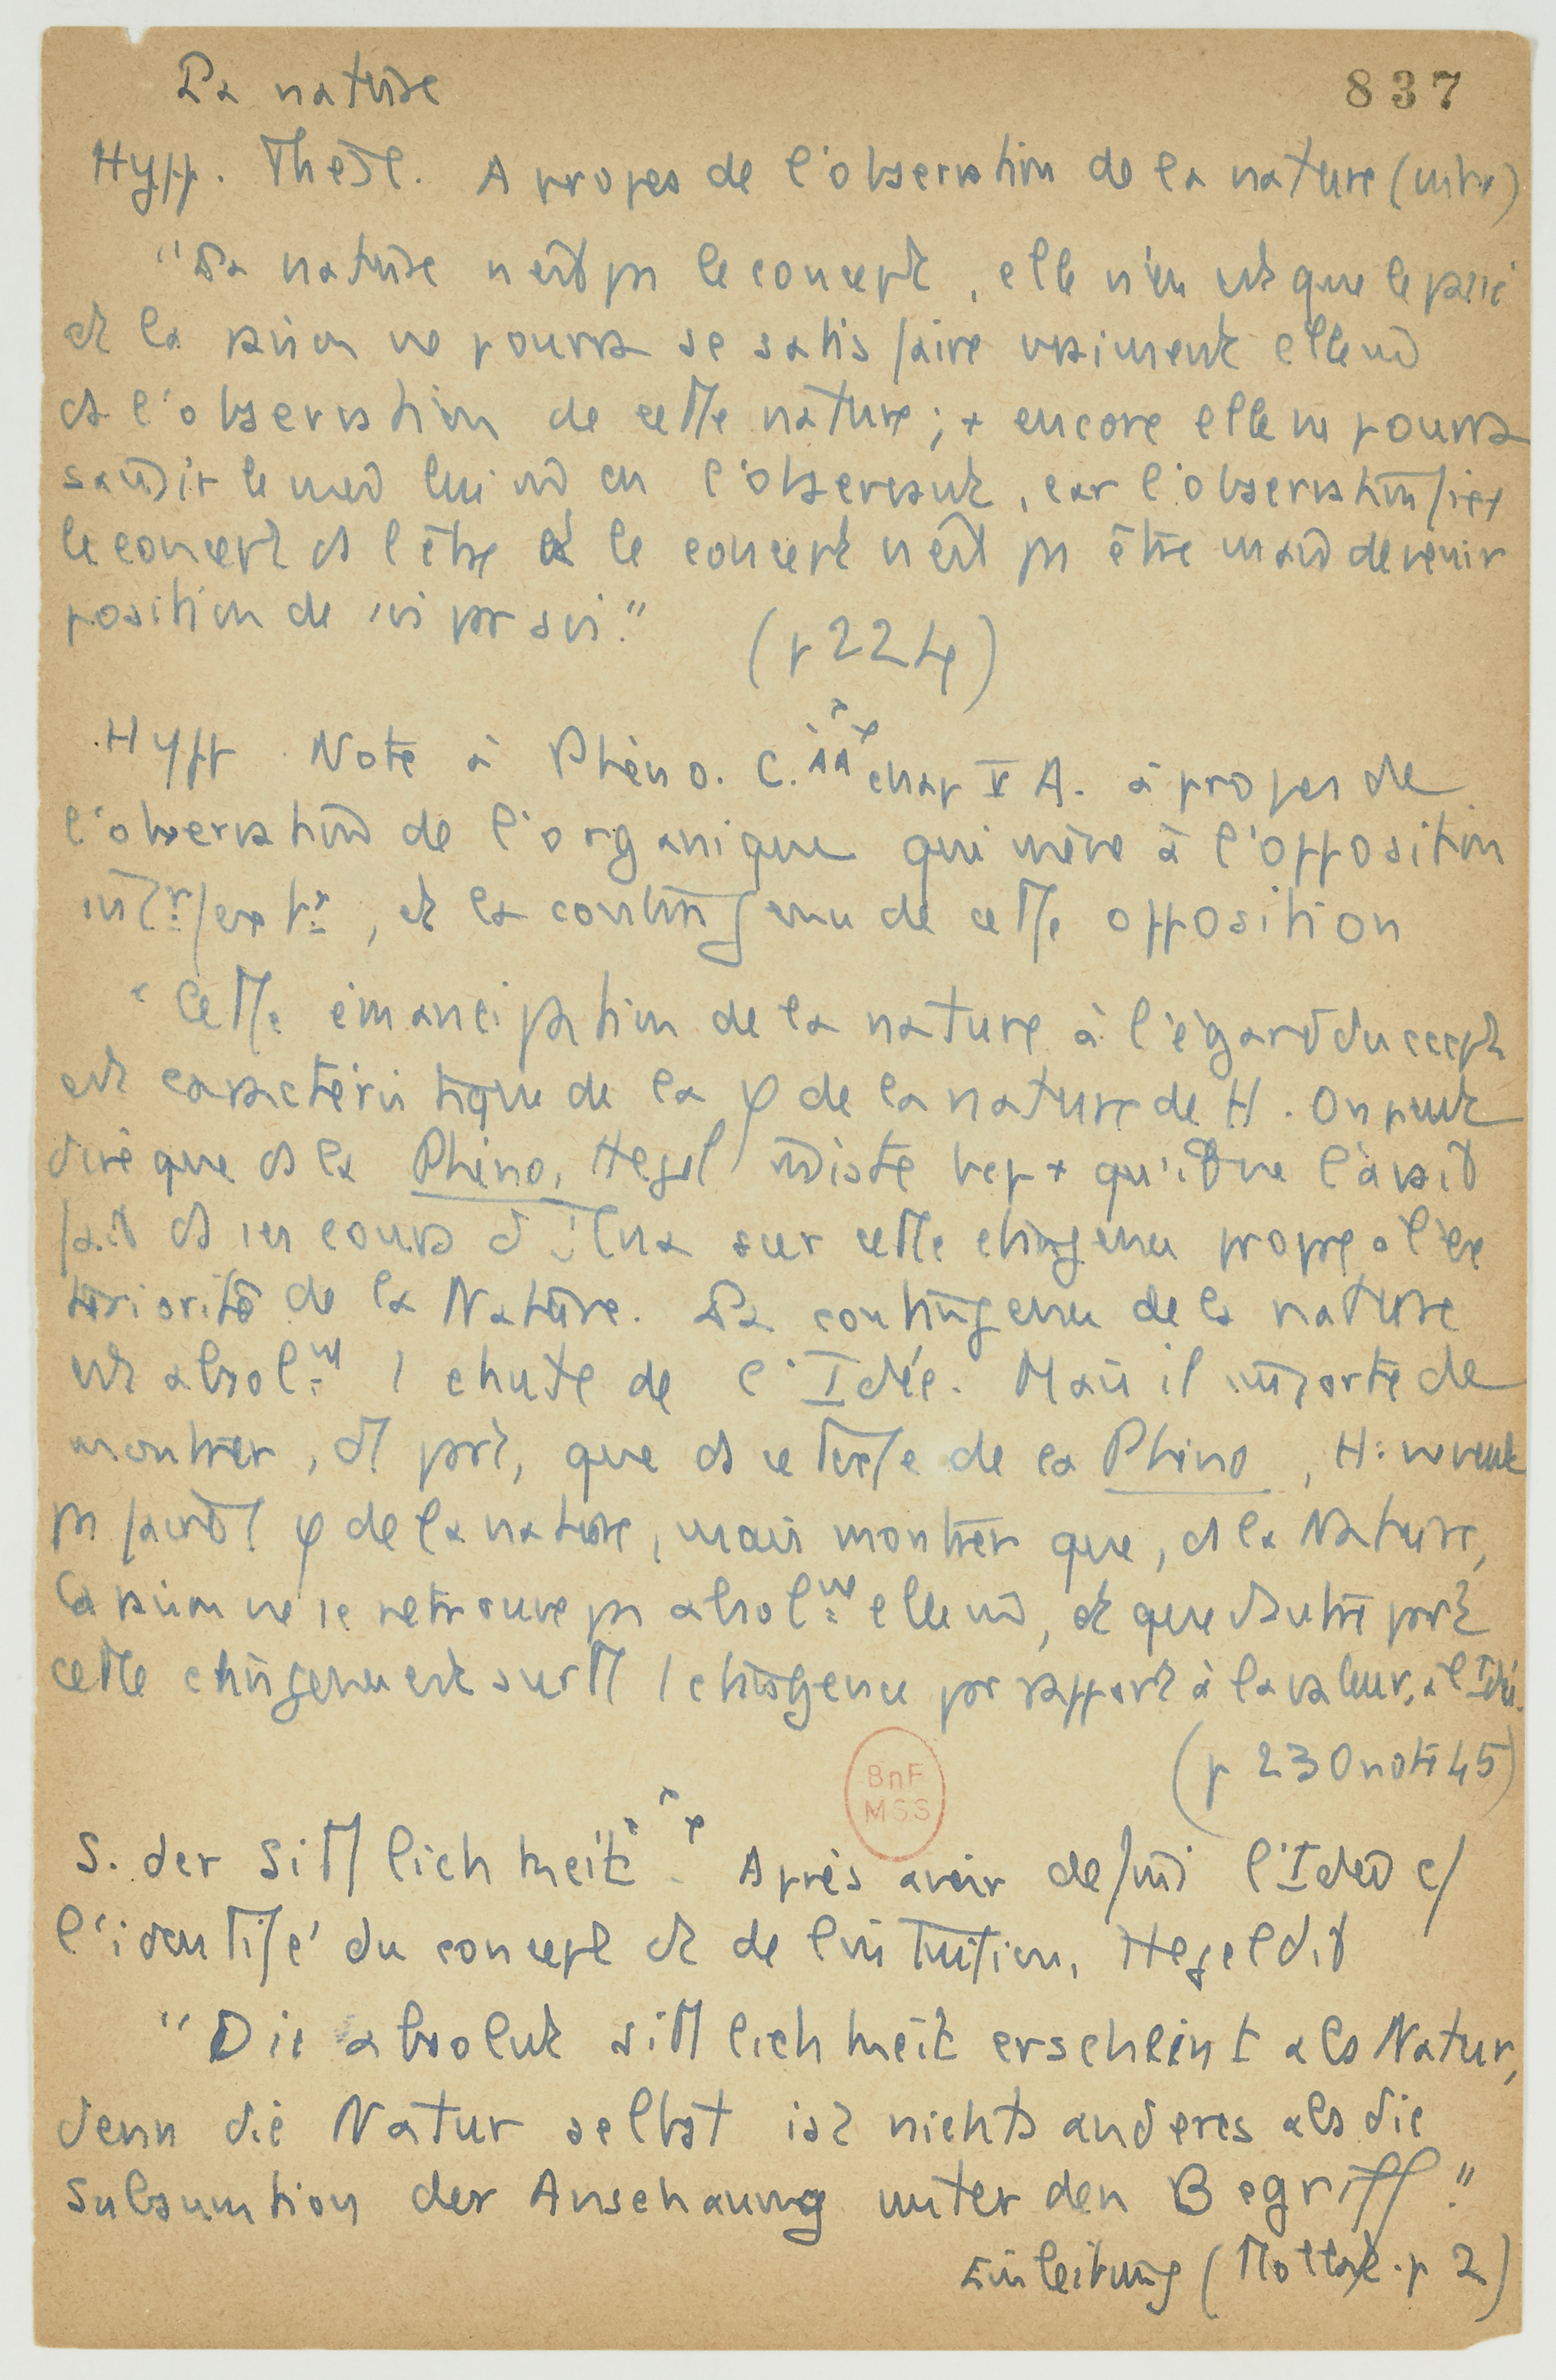 La nature
837
Hypp. Thèse. A propos de l'observation de la nature (intro)
"La nature n'est pas le concept, elle n'en est que le passé
et la raison ne pourra se satisfaire vraiment elle m̂
ds l'observation de cette nature ; + encore elle ne pourra
saisir le lui m̂ en l'observant, car l'observation fixe
le concept ds l'être et le concept n'est pas être mais devenir
position de soi par soi." (p 224)
Hypp Note à Phéno. C. AA chap V A. à propos de
l'observation de l'organique qui mène à l'opposition
intr/extr, et la contingence de cette opposition
"Cette émancipation de la nature à l'égard du ccept
est caractéristique de la φ de la nature de H. On peut
dire que ds la Phéno, Hegel insiste bcp + qu'il ne l'avait
fait ds les cours d'Iéna sur cette chingence propre à l'ex
tériorité de la Nature. La contingence de la nature
est absolmt 1 chute de l'Idée. Mais il importe de
montrer, d'1 part, que ds ce texte de la Phéno, H. ne veut
pas faire 1 φ de la nature, mais montrer que, ds la Nature,
la raison ne se retrouve pas absolmt elle m̂, et que d'autre part
cette chingence est surtt 1 chingence par rapport à la valeur, à l'Idée.
(p 230 note 45)
S. der Sittlichkeit. Après avoir défini l'Idée c/
l'identité du concept et de l'intuition, Hegel dit
"Die absolute Sittlichkeit erscheint als Natur,
denn die Natur selbst ist nichts anderes als die
Subsumtion der Anschauung unter den Begriff."
Einleitung (Mollat. p 2)
BnF
MSS